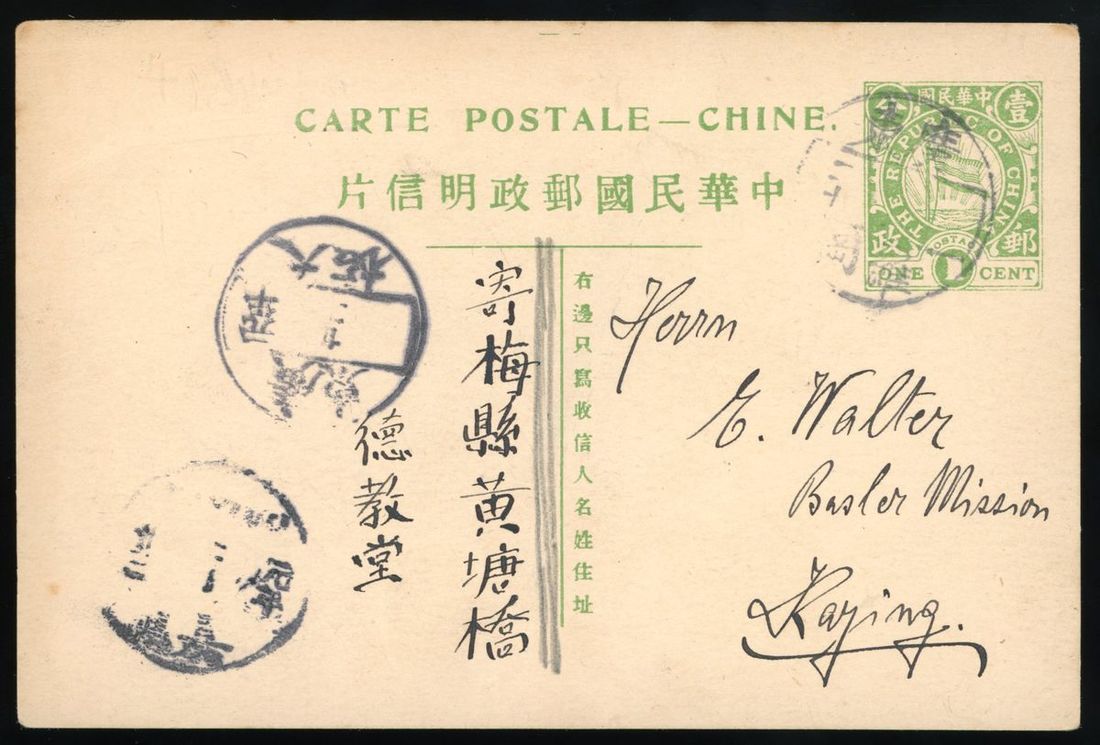 CARTE POSTALE—CHINE.
中華民國郵政明信片
中華民國
壹
分
THE REPUBLIC OF CHINA
POSTAGE
郵
政
ONE
1
CENT
右邊只寫收信人名姓住址
Herrn
E. Walter
Basler Mission
Kaying.
寄梅縣黃塘橋
德教堂
大柘
廣東